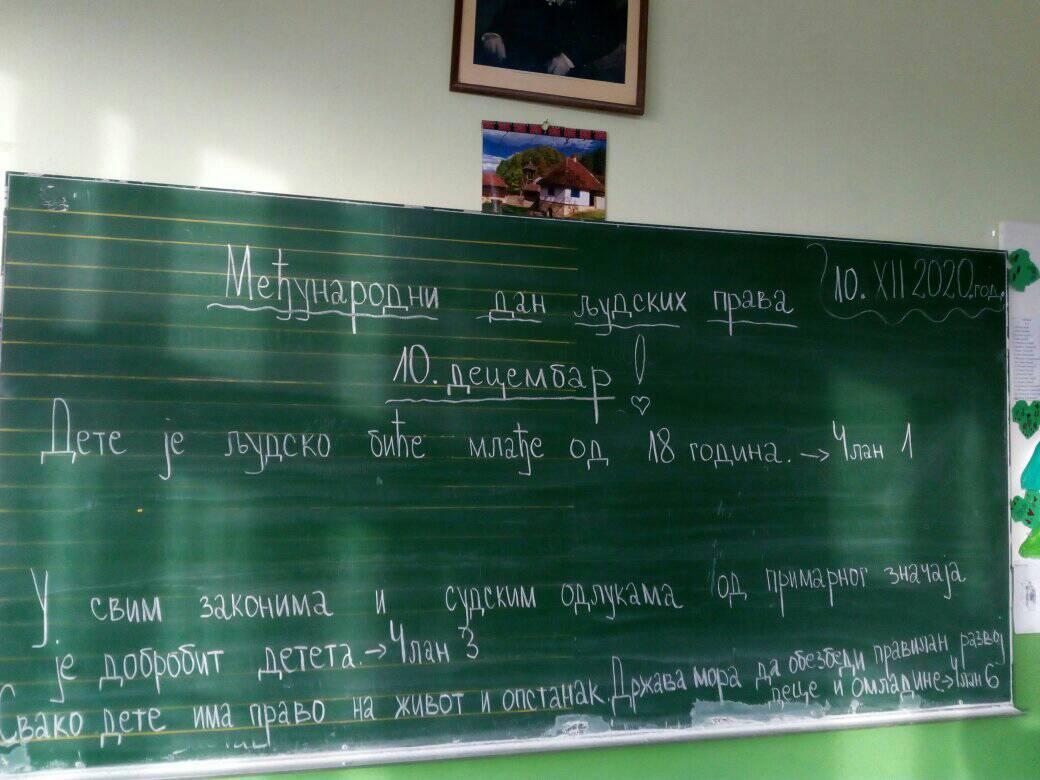 Међународни дан људских права
10. XII 2020. год.
10. децембар!
Дете је људско биће млађе од 18 година. → Члан 1
У свим законима и судским одлукама од примарног значаја
је добробит детета. → Члан 3
Свако дете има право на живот и опстанак. Држава мора да обезбеди правилан развој
деце и омладине → Члан 6